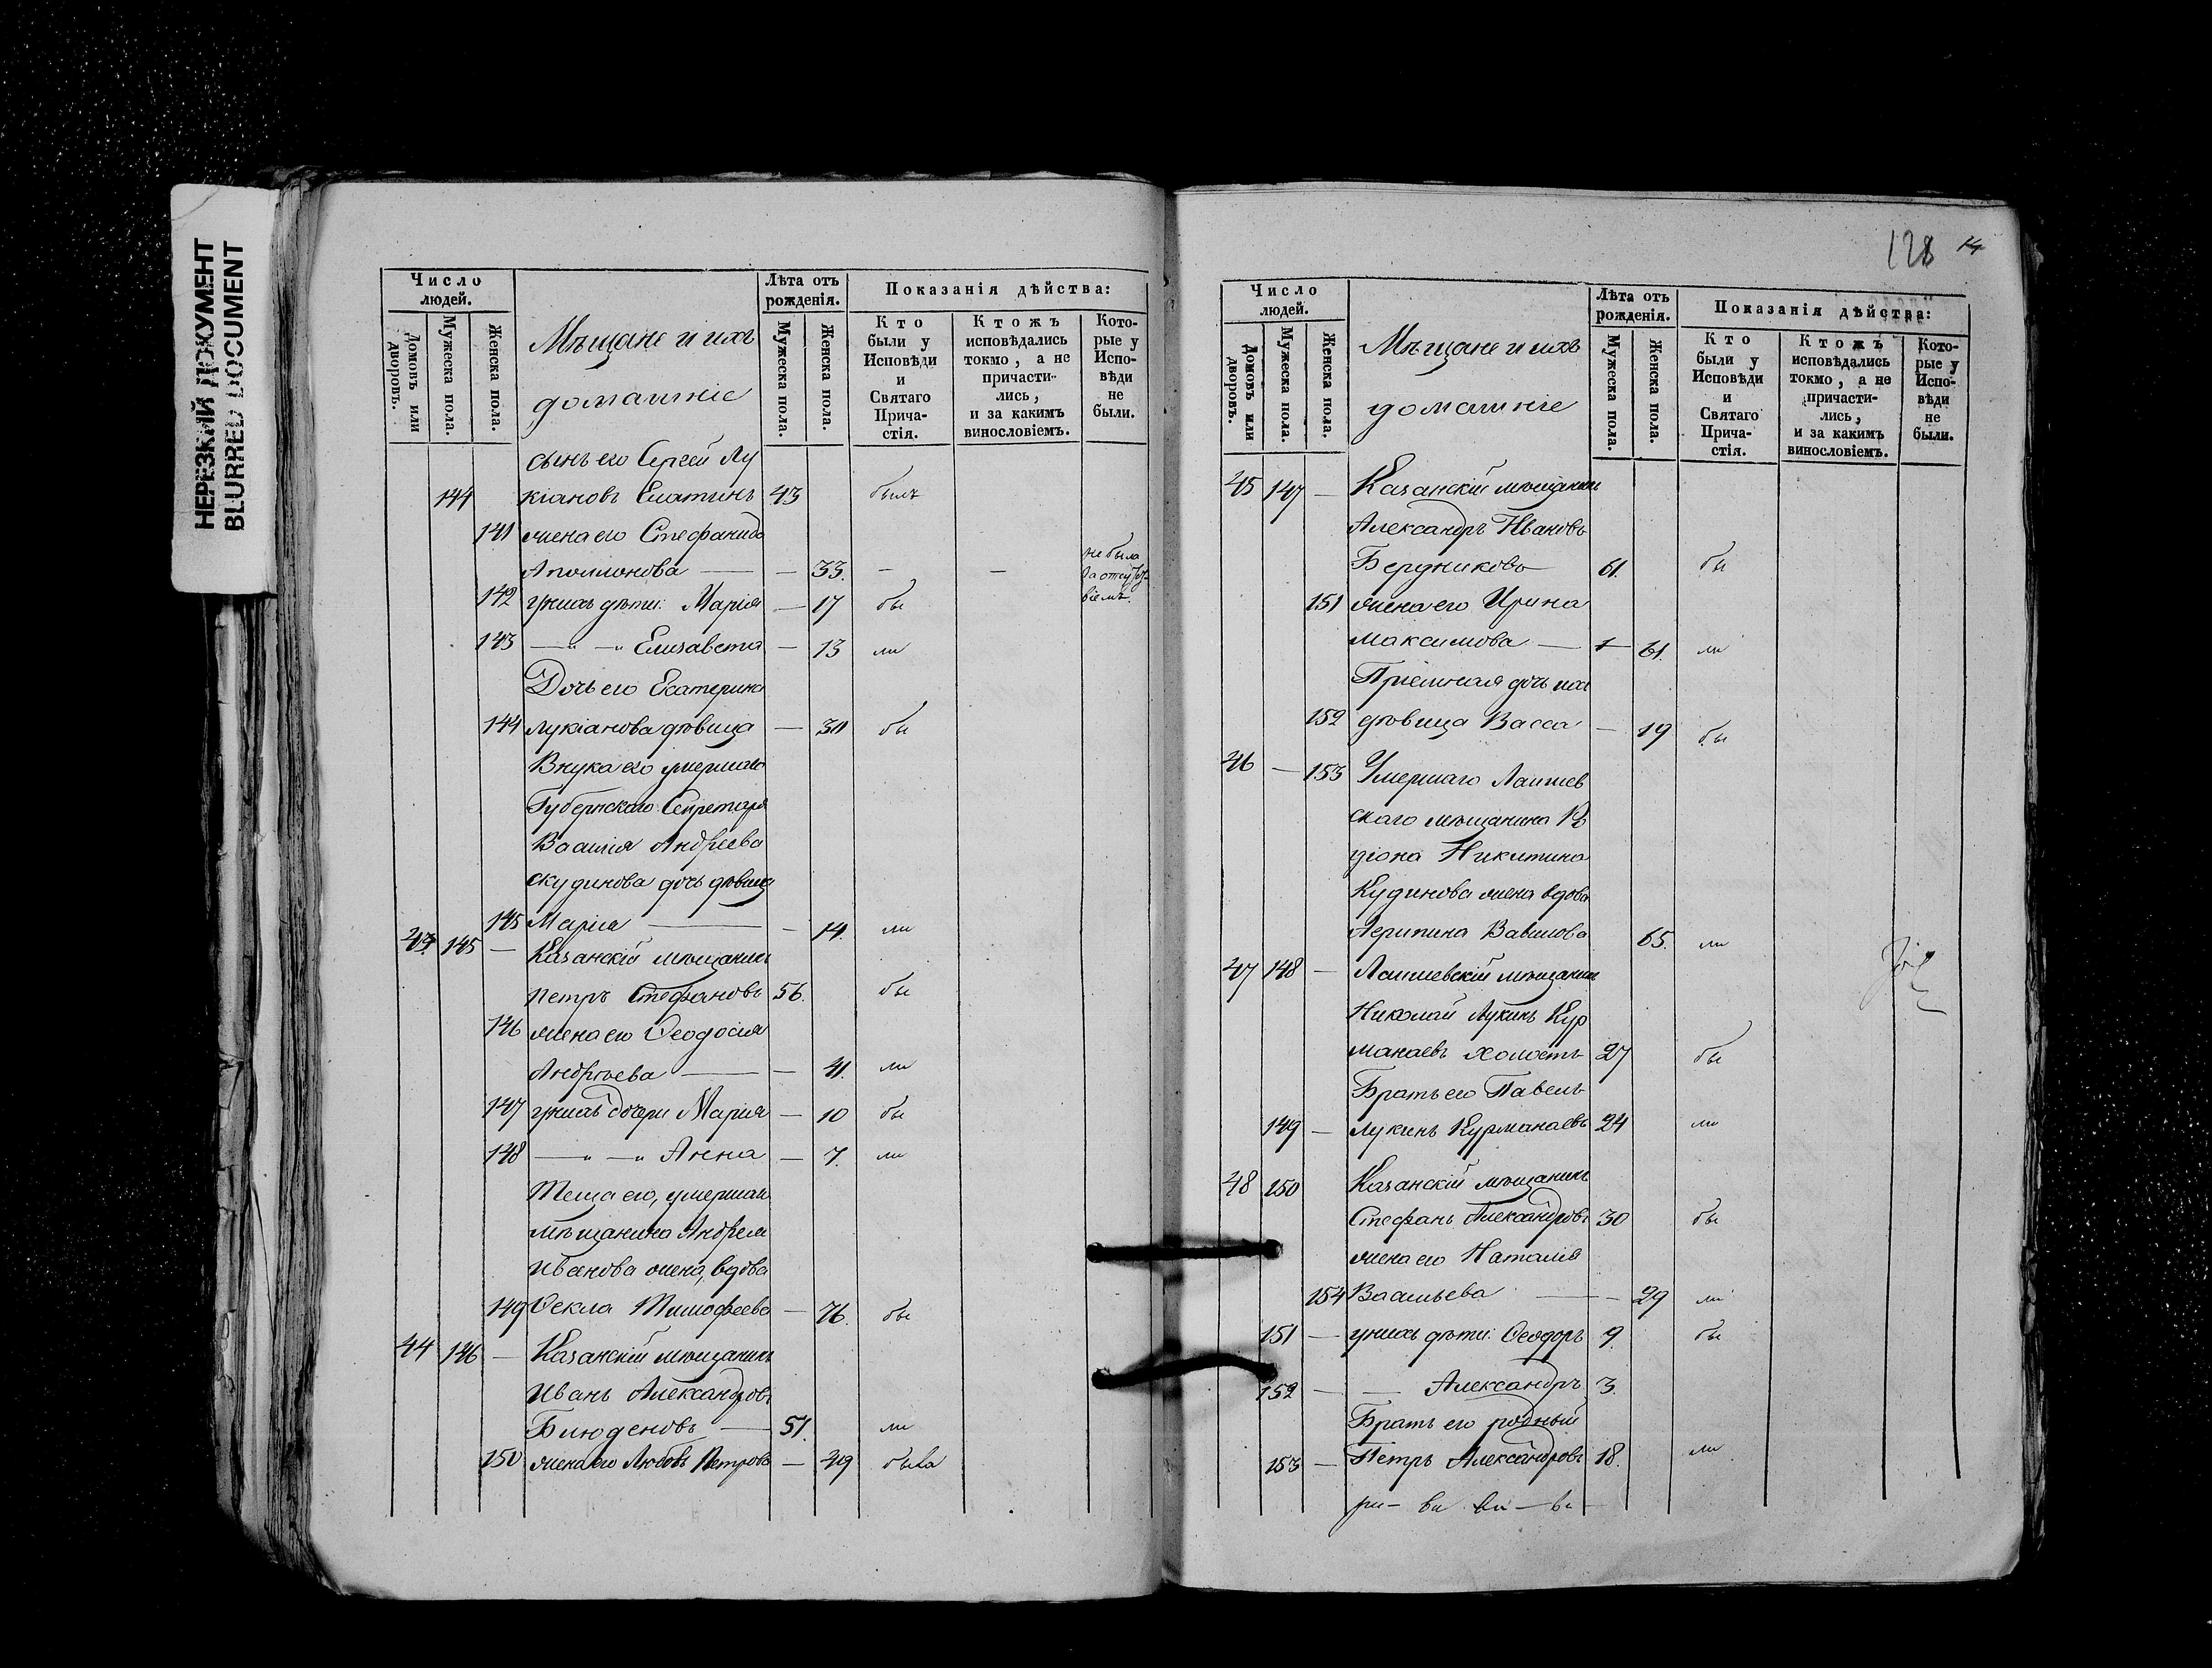 НЕРЕЗКИЙ ДОКУМЕНТ
BLURRED DOCUMENT
Число людей.
Домовъ или дворовъ.
Мужеска пола.
Женска пола.
Мѣщане и ихъ
домашніе
Лѣта отъ рожденія.
Мужеска пола.
Женска пола.
Показанія дѣйства:
Кто были у Исповѣди и Святаго Прича-стія.
Ктожъ исповѣдались токмо, а не причасти-лись, и за какимъ винословіемъ.
Кото-рые у Испо-вѣди не были.
сынъ его Сергей Лу
144 кіановъ Елатинъ 43 былъ
141 жена его Стефанида
Аполлонова — — 33. — — не была за отсутствіемъ.
142 у нихъ дѣти: Марія — 17 бы
143 — „ — „ Елизавета — 13 ли
Дочь его Екатерина
144 Лукіанова дѣвица — 30 бы
Внука его умершаго
Губернскаго Секретаря
Василія Андреева
Скудинова дочь дѣвица
145 Марія — — 14. ли
43 145 — Казанскій мѣщанинъ
Петръ Стефановъ 56. бы
146 жена его Ѳеодосія
Андреева — — 41. ли
147 у нихъ дочери Марія — 10 бы
148 — „ — „ Анна — 7. ли
Теща его, умершаго
мѣщанина Андрея
Иванова жена, вдова
149 Ѳекла Тимофеева — 76. бы
44 146 — Казанскій мѣщанинъ
Иванъ Александровъ
Блюденовъ — 51. ли
150 жена его Любовь Петрова — 49 была
128 14
Число людей.
Домовъ или дворовъ.
Мужеска пола.
Женска пола.
Мѣщане и ихъ
домашніе
Лѣта отъ рожденія.
Мужеска пола.
Женска пола.
Показанія дѣйства:
Кто были у Исповѣди и Святаго Прича-стія.
Ктожъ исповѣдались токмо, а не причасти-лись, и за какимъ винословіемъ.
Кото-рые у Испо-вѣди не были.
45 147 — Казанскій мѣщанинъ
Александръ Ивановъ
Бердниковъ 61. бы
151 жена его Ирина
Максимова — 61. ли
Пріемная дочь ихъ
152 дѣвица Васса — 19 бы
46 — 153 Умершаго Лаишев
скаго мѣщанина Ро
діона Никитина
Кудинова жена вдова
Агрипина Вавилова 65. ли
47 148 — Лаишевскій мѣщанинъ
Николай Лукинъ Кур
манаевъ холостъ 27 бы
Братъ его Павелъ
149 — Лукинъ Курманаевъ 24 ли
48 150 Казанскій мѣщанинъ
Стефанъ Александровъ 30 бы
жена его Наталія
154 Васильева — — 29 ли
151 — у нихъ дѣти: Ѳеодоръ 9. бы
152 — — Александръ 3.
Братъ его родный
153 — Петръ Александровъ 18. ли